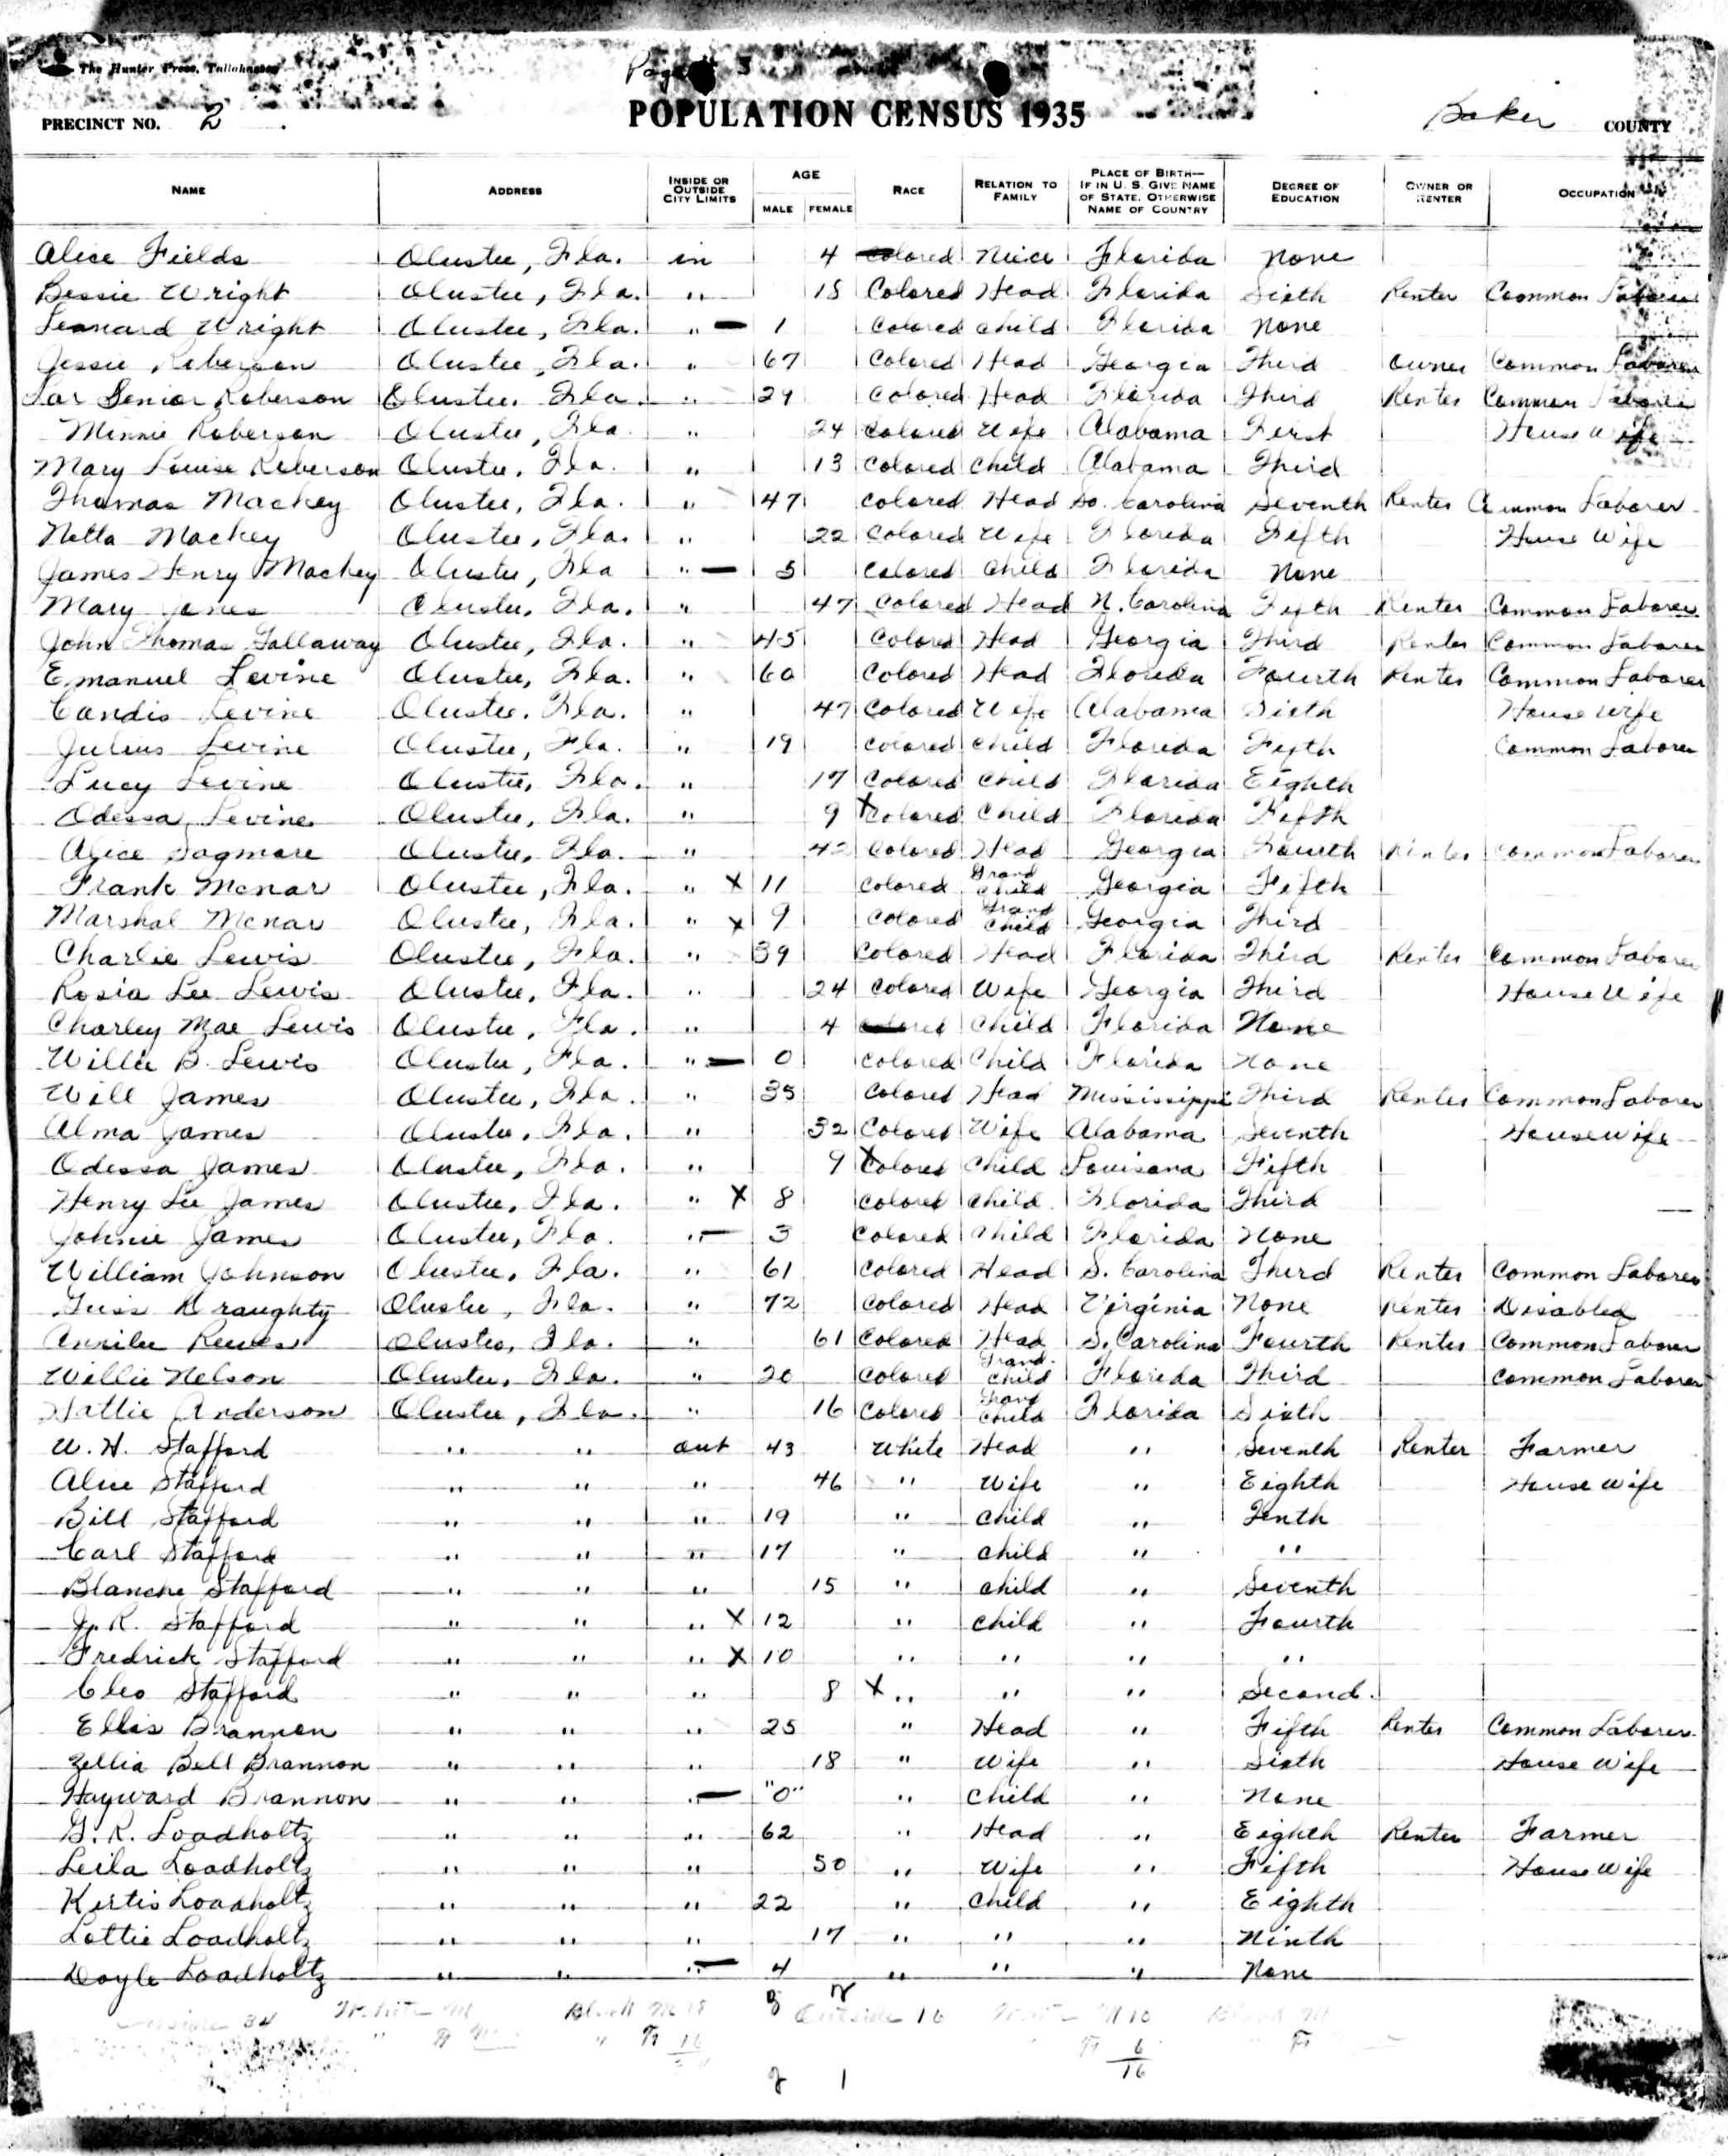 The Hunter Press, Tallahassee
Page 3
PRECINCT NO. 2 POPULATION CENSUS 1935 Baker COUNTY
NAME ADDRESS INSIDE OR OUTSIDE CITY LIMITS AGE MALE FEMALE RACE RELATION TO FAMILY PLACE OF BIRTH—IF IN U. S. GIVE NAME OF STATE, OTHERWISE NAME OF COUNTRY DEGREE OF EDUCATION OWNER OR RENTER OCCUPATION
Alice Fields Olustee, Fla. in 4 Colored Neice Florida None
Bessie Wright Olustee, Fla. " 18 Colored Head Florida Sixth Renter Common Laborer
Leonard Wright Olustee, Fla. " — 1 Colored Child Florida None
Jessie Roberson Olustee, Fla. " 67 Colored Head Georgia Third Owner Common Laborer
Senior Roberson Olustee, Fla. " 29 Colored Head Florida Third Renter Common Laborer
Minnie Roberson Olustee, Fla. " 24 Colored Wife Alabama First House Wife
Mary Louise Roberson Olustee, Fla. " 13 Colored Child Alabama Third
Thomas Mackey Olustee, Fla. " 47 Colored Head So. Carolina Seventh Renter Common Laborer
Netta Mackey Olustee, Fla. " 22 Colored Wife Florida Fifth House Wife
James Henry Mackey Olustee, Fla " — 5 Colored Child Florida None
Mary Jones Olustee, Fla. " 47 Colored Head N. Carolina Fifth Renter Common Laborer
John Thomas Gallaway Olustee, Fla. " 45 Colored Head Georgia Third Renter Common Laborer
Emanuel Levine Olustee, Fla. " 60 Colored Head Florida Fourth Renter Common Laborer
Candis Levine Olustee, Fla. " 47 Colored Wife Alabama Sixth House Wife
Julius Levine Olustee, Fla. " 19 Colored Child Florida Fifth Common Laborer
Lucy Levine Olustee, Fla. " 17 Colored Child Florida Eighth
Odessa Levine Olustee, Fla. " 9 x Colored Child Florida Fifth
Alice Sagmore Olustee, Fla. " 42 Colored Head Georgia Fourth Renter Common Laborer
Frank Mcnar Olustee, Fla. " x 11 Colored Grand Child Georgia Fifth
Marshal Mcnar Olustee, Fla. " x 9 Colored Grand Child Georgia Third
Charlie Lewis Olustee, Fla. " 39 Colored Head Florida Third Renter Common Laborer
Rosia Lee Lewis Olustee, Fla. " 24 Colored Wife Georgia Third House Wife
Charley Mae Lewis Olustee, Fla. " 4 Colored Child Florida None
Willie B. Lewis Olustee, Fla. " — 0 Colored Child Florida None
Will James Olustee, Fla. " 35 Colored Head Mississippi Third Renter Common Laborer
Alma James Olustee, Fla. " 32 Colored Wife Alabama Seventh Housewife
Odessa James Olustee, Fla. " 9 x Colored Child Louisana Fifth
Henry Lee James Olustee, Fla. " x 8 Colored Child Florida Third
Johnie James Olustee, Fla. " — 3 Colored Child Florida None
William Johnson Olustee, Fla. " 61 Colored Head S. Carolina Third Renter Common Laborer
Guss Draughty Olustee, Fla. " 72 Colored Head Virginia None Renter Disabled
Annilee Reeves Olustee, Fla. " 61 Colored Head S. Carolina Fourth Renter Common Laborer
Willie Nelson Olustee, Fla. " 20 Colored Grand Child Florida Third Common Laborer
Hattie Anderson Olustee, Fla. " 16 Colored Grand Child Florida Sixth
W. H. Stafford " " out 43 White Head " Seventh Renter Farmer
Alice Stafford " " " 46 " Wife " Eighth House Wife
Bill Stafford " " " 19 " Child " Tenth
Carl Stafford " " " 17 " Child " "
Blanche Stafford " " " 15 " Child " Seventh
J. R. Stafford " " " x 12 " Child " Fourth
Fredrick Stafford " " " x 10 " " " "
Cleo Stafford " " " 8 x " " " Second
Ellis Brannon " " " 25 " Head " Fifth Renter Common Laborer
Zellia Bell Brannon " " " 18 " Wife " Sixth House Wife
Hayward Brannon " " " — "0" " Child " None
G. R. Loadholtz " " " 62 " Head " Eighth Renter Farmer
Leila Loadholtz " " " 50 " Wife " Fifth House Wife
Kirtis Loadholtz " " " 22 " Child " Eighth
Lottie Loadholtz " " " 17 " " " Ninth
Doyle Loadholtz " " " — 4 " " " None
34 White M Black M 18 8 Outside 16 White M 10 Black M
" F " F 16 F 6 F
16
1